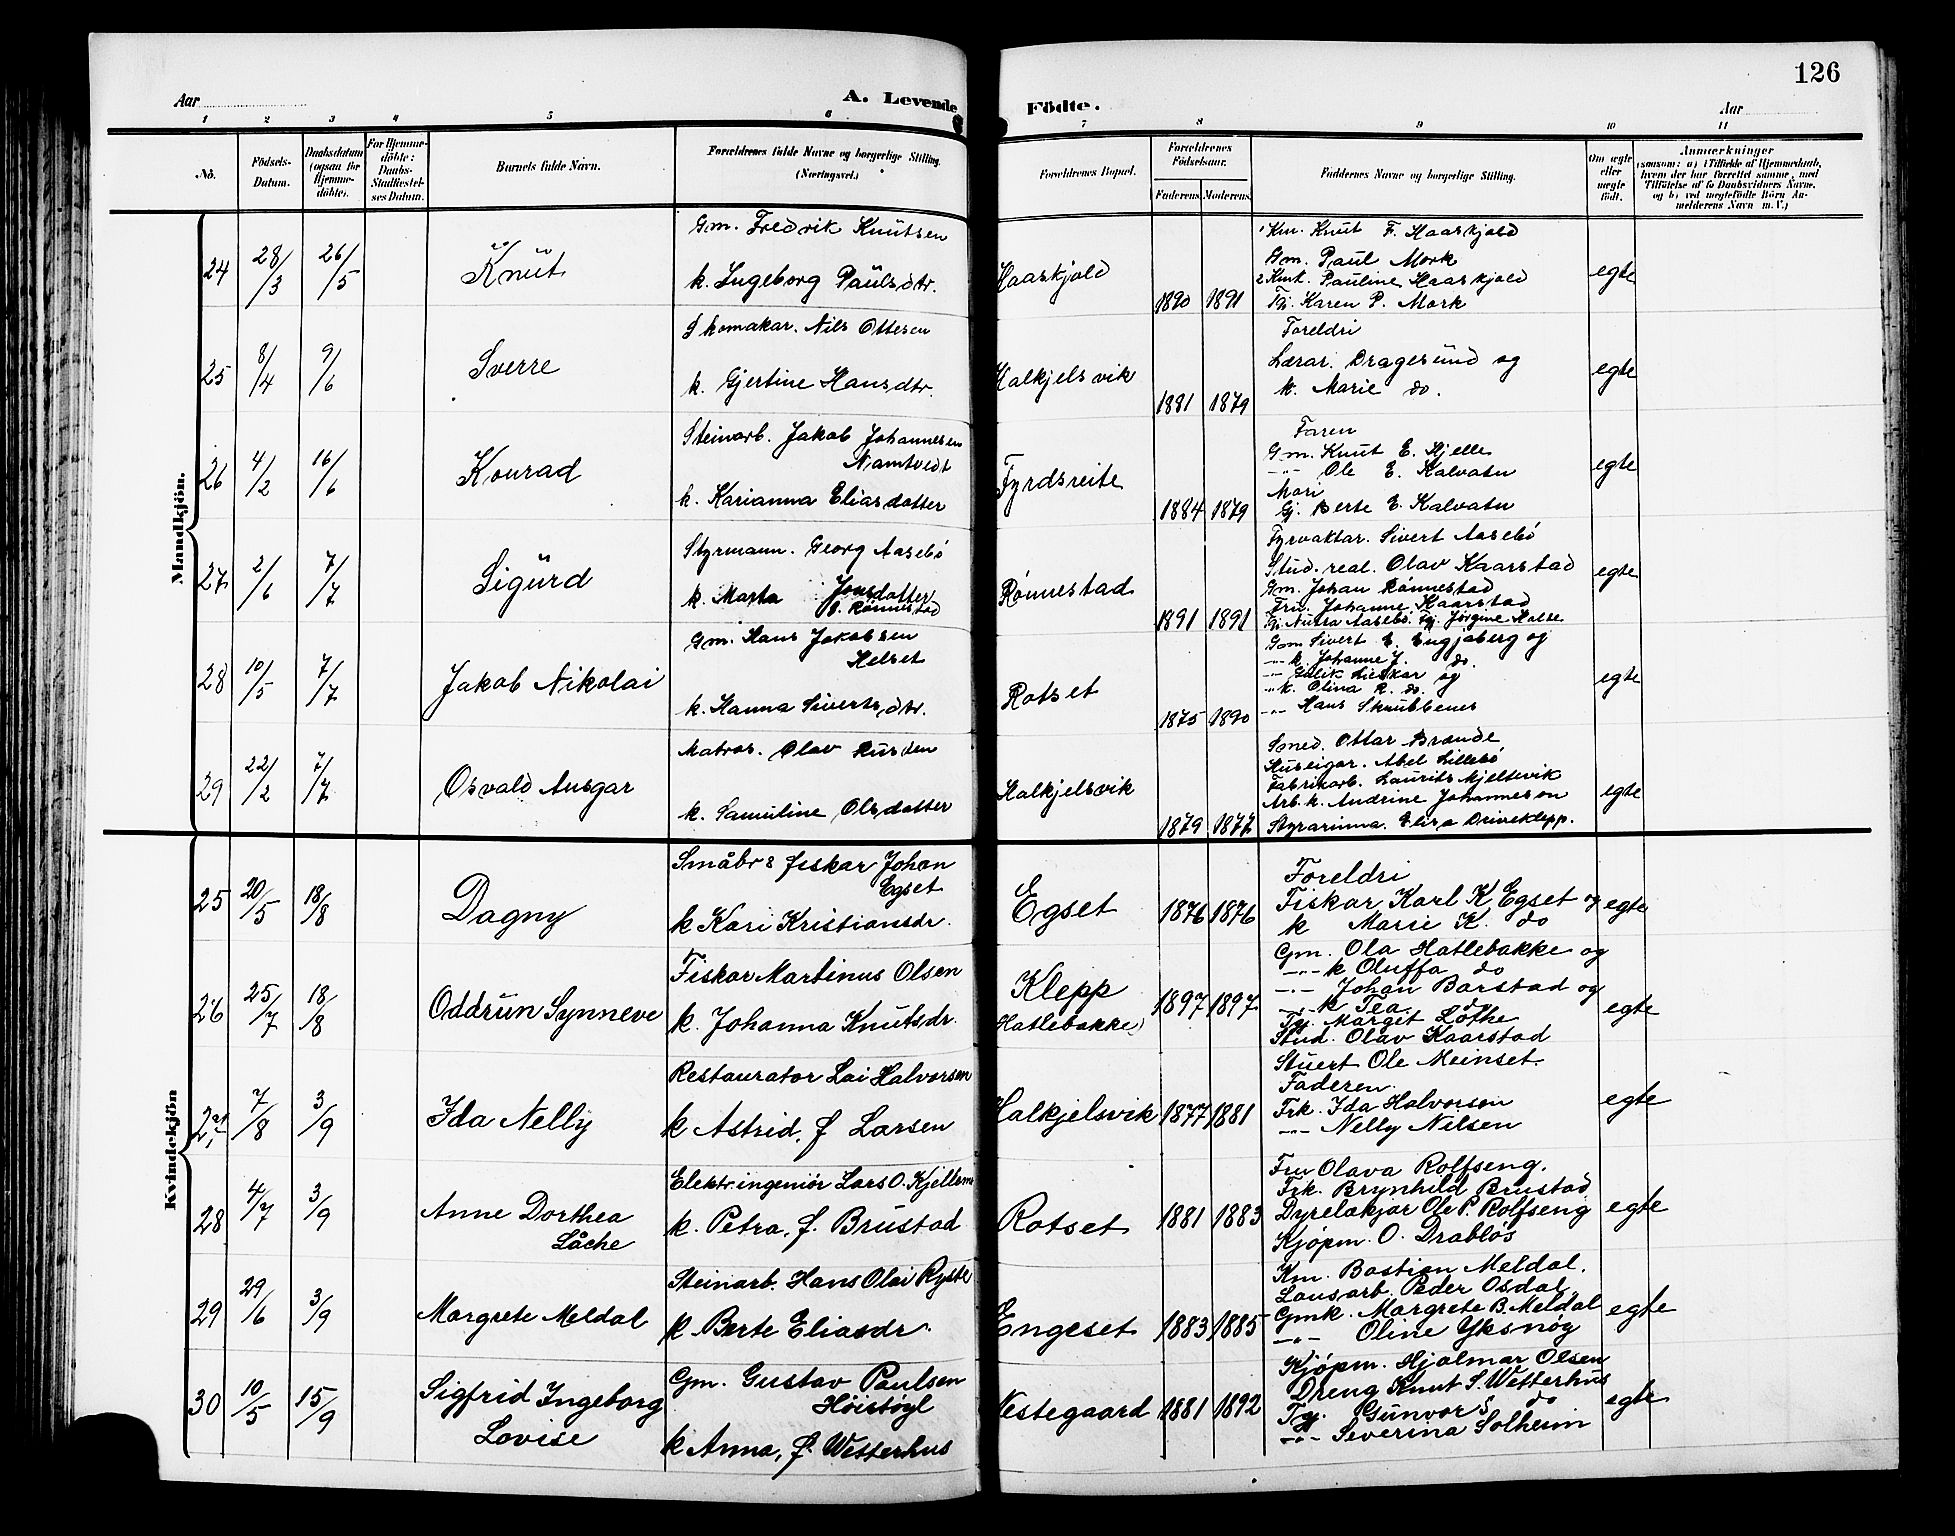 126
Aar
A. Levende Födte.
Aar
1 2 3 4 5 6 7 8 9 10 11
No.
Födsels-Datum.
Daabsdatum (ogsaa for Hjemmedöbte).
For Hjemmedöbte: Daabs-Stadfestelses Datum.
Barnets fulde Navn.
Forældrenes fulde Navne og borgerlige Stilling. (Næringsvei.)
Forældrenes Bopæl.
Forældrenes Födselsaar.
Faderens Moderens
Faddernes Navne og borgerlige Stilling.
Om ægte eller uægte födt.
Anmærkninger
(saasom: a) i Tilfælde af Hjemmedaab, hvem der har forrettet samme, med Tilföielse af to Daabsvidners Navne, og b) ved uægtefödte Börn Anmelderens Navn m. V.)
Mandkjön.
24 28/3 26/5 Knut
Gm. Fredrik Knutsen
k. Ingeborg Paulsdtr.
Haaskjold 1890 1891
1 Km. Knut F. Haaskjold
Gm. Paul Mork
2 Kmk. Pauline Haaskjold
Tg. Karen P. Mork
egte
25 8/4 9/6 Sverre
Skomakar. Nils Ottesen
k. Gjertine Hansdtr.
Halkjelsvik 1881 1879
Foreldri
Lærar. Dragesund og
k. Marie do.
egte
26 4/2 16/6 Konrad
Steinarb. Jakob Johannesen
Namtvedt
k. Karianna Eliasdotter
Fyrdsreite 1884 1879
Faren
Gm. Knut E. Hjelle
-"- Ole E. Kalvatn
Mori
Gj. Berte E. Kalvatn
egte
27 2/6 7/7 Sigurd
Styrmann. Georg Aasebö
k. Marta Jonsdotter
f. Rönnestad
Rønnestad 1891 1891
Fyrvaktar. Sivert Aasebö
Stud. real. Olav Kaarstad
Gm. Johan Rönnestad
Fru. Johanne Kaarstad
Tg. Nutsa Aasebö. Tg. Jørgine Halse
egte
28 10/5 7/7 Jakob Nikolai
Gm. Hans Jakobsen
Helset
k. Hanna Sivertsdtr.
Rotset 1875 1890
Gm Sivert E. Engjaberg og
-"- k. Johanne J. do.
-"- Gullik Lieskar og
-"- k. Olina R. do.
-"- Hans Skrubbenes
egte
29 22/2 7/7 Osvald Ansgar
Matros. Olav Rusden
k. Samuline Olsdotter
Halkjelsvik 1879 1877
Smed. Ottar Brænde
Huseigar. Abel Lillebö
Fabrikarb. Laurits Kjeltsvik
Arb. k. Andrine Johannesen
Styrarinna. Elisa Driveklepp.
egte
Kvindekjön
25 20/5 18/8 Dagny
Småbr & fiskar Johan
Egset
k Kari Kristiansdr.
Egset 1876 1876
Foreldri
Fiskar Karl K Egset og
k Marie K. do
egte
26 25/7 18/8 Oddrun Synneve
Fiskar Martinus Olsen
k. Johanna Knutsdr.
Klepp
(Hatlebakke) 1897 1897
Gm. Ola Hatlebakke og
-"- k Oluffa do
-"- Johan Barstad og
-"- k Tea do
Tg. Marget Løthe
Stud. Olav Kaarstad
egte
27 7/8 3/9 Ida Nelly
Restaurator Lai Halvorsen
k Astrid, f Larsen
Halkjelsvik 1877 1881
Stuert Ole Meinset.
Faderen.
Frk. Ida Halvorsen
-"- Nelly Nilsen
egte
28 4/7 3/9 Anne Dorthea
Låche
Elektr.ingeniör Lars O. Kjellsmo
k. Petra, f. Brustad
Rotset 1881 1883
Fru Olava Rolfseng.
Frk. Brynhild Brustad
Dyrelækjar Ole P. Rolfseng
Kjöpm. O. Drabløs
egte
29 29/6 3/9 Margrete Meldal
Steinarb. Hans Olai Ryste
k Berte Eliasdr.
Engeset 1883 1885
Km. Bastian Meldal.
Lausarb. Peder Osdal
Gmk. Margrete B. Meldal
-"- Oline Yksnøy
egte
30 10/5 15/9 Sigfrid Ingeborg
Lovise
Gm. Gustav Paulsen
Höistøyl
k Anna, f. Wetterhus
Vestegaard 1881 1892
Kjöpm. Hjalmar Olsen
Dreng Knut S. Wetterhus
Tg. Gunvor S do
-"- Severina Solheim
egte